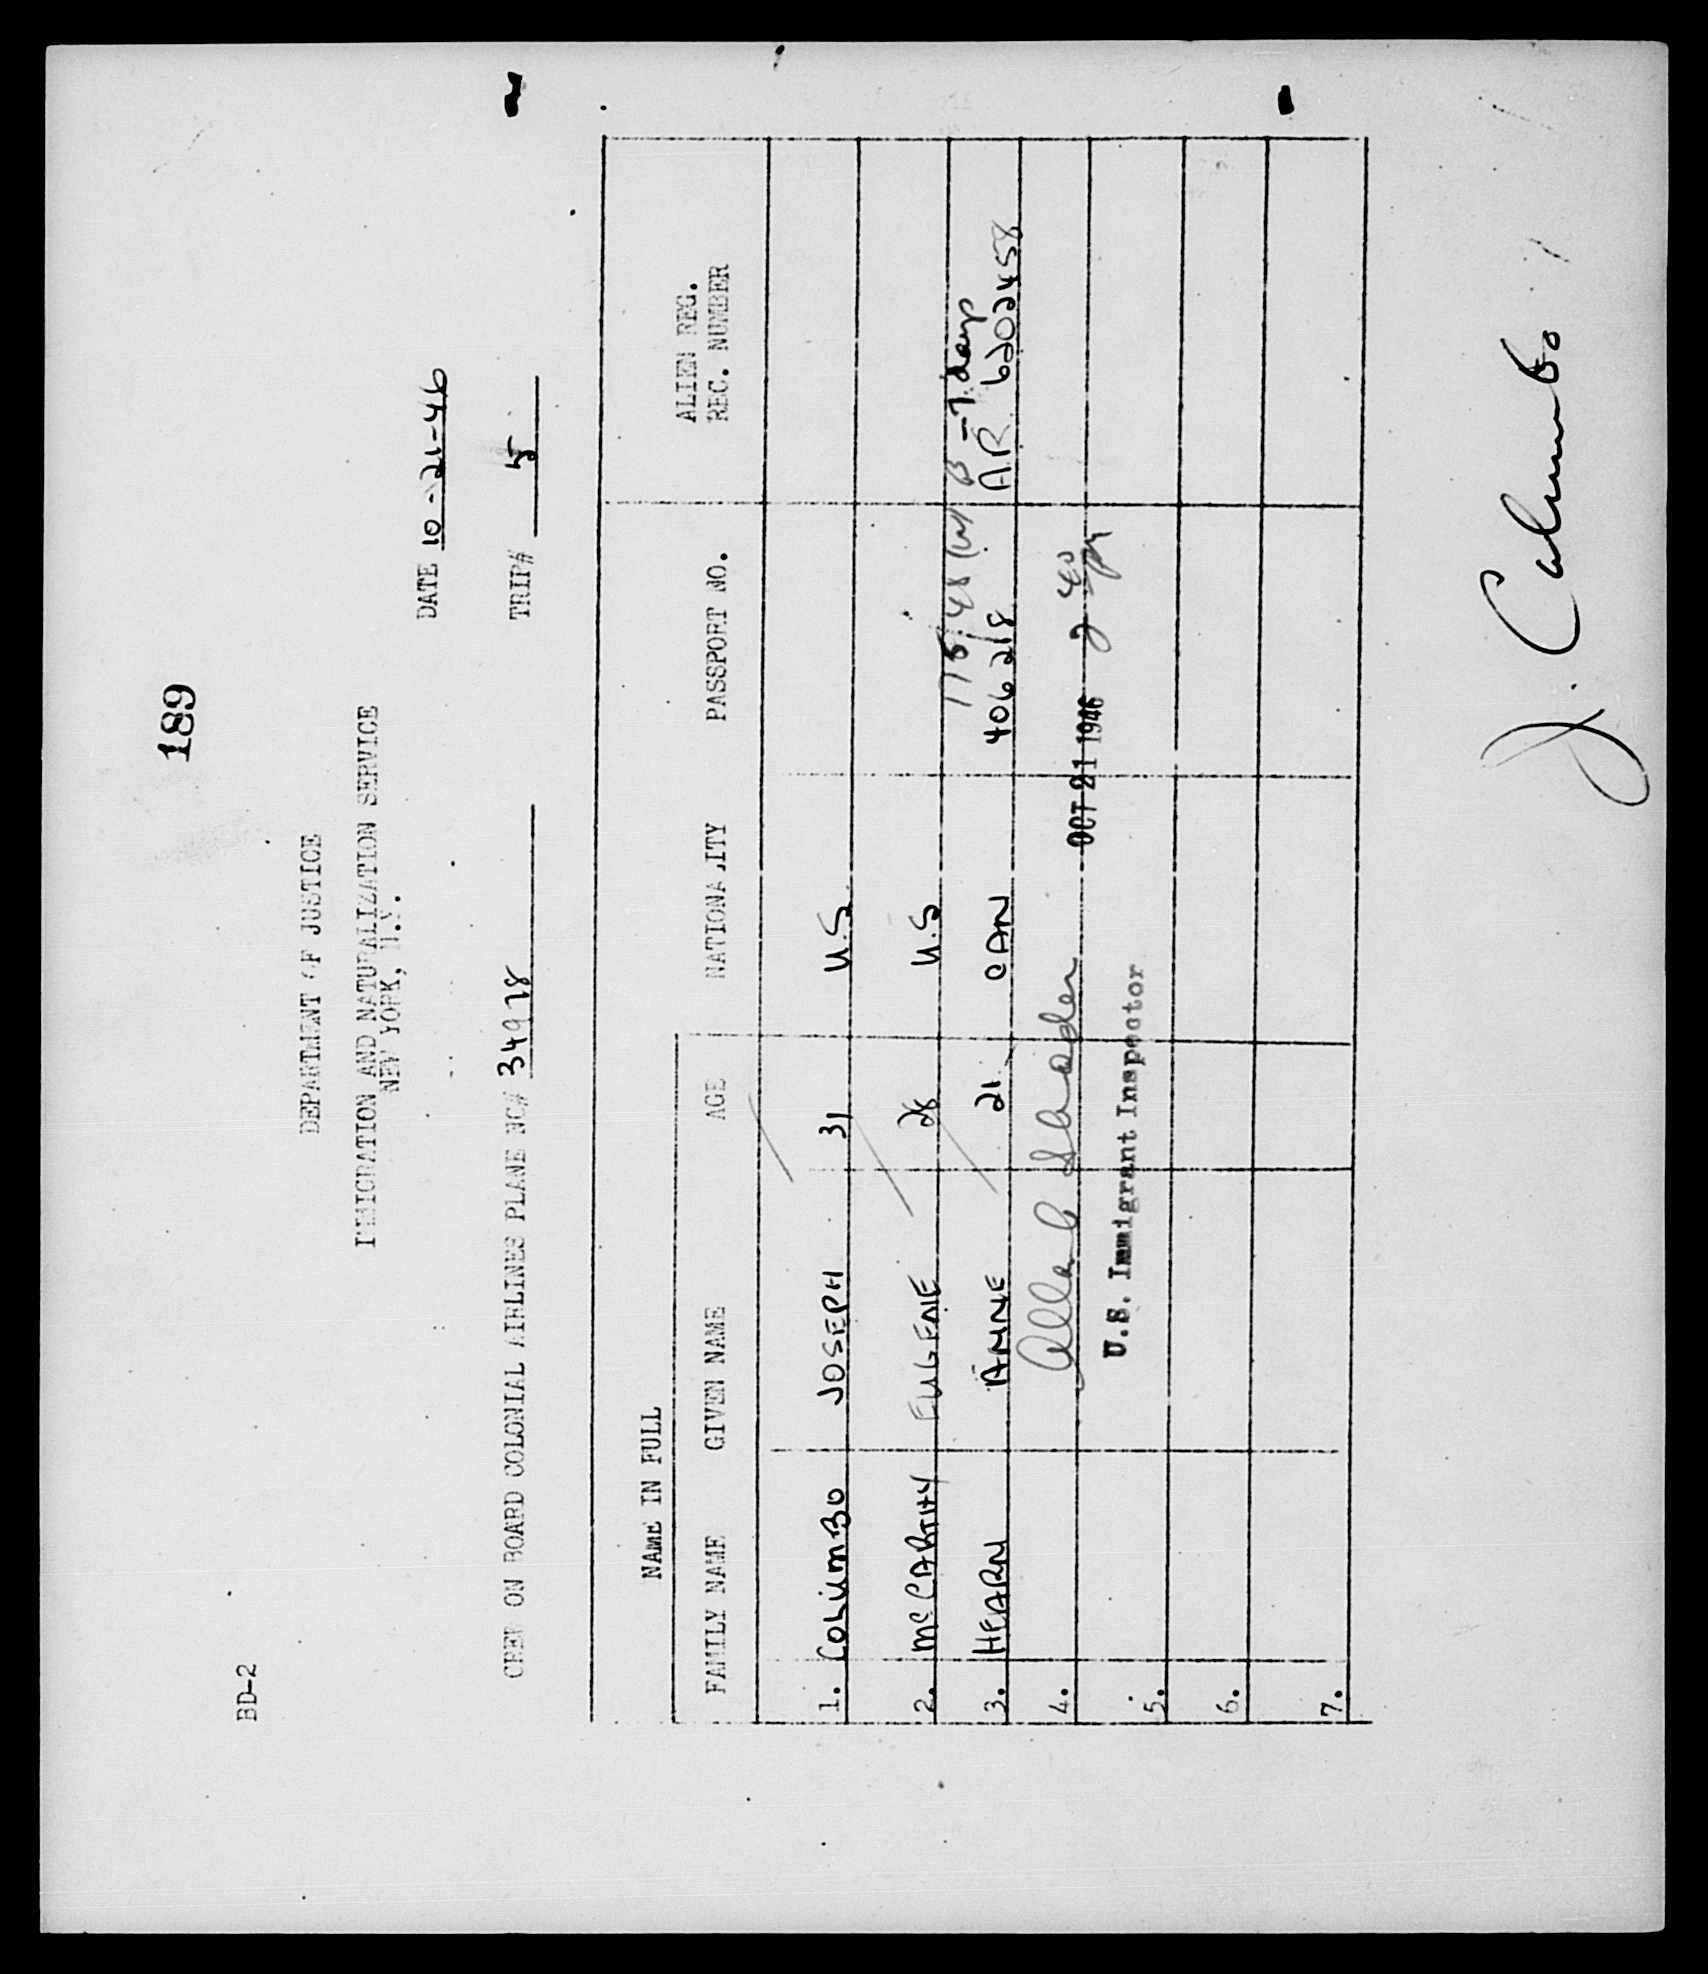 189
BD-2
DEPARTMENT OF JUSTICE
IMMIGRATION AND NATURALIZATION SERVICE
NEW YORK, N.Y.
DATE 10-21-46
CREW ON BOARD COLONIAL AIRLINES PLANE NC# 34978 TRIP# 5
NAME IN FULL
FAMILY NAME GIVEN NAME AGE NATIONALITY PASSPORT NO. ALIEN REG. REC. NUMBER
1. COLUMBO JOSEPH 31 U.S.
2. McCARTHY EUGENE 28 U.S
3. HEARN ANNE 21 CAN 406218 B-7.days AR 6202458
4. OCT 21 1946 2 40
U.S. Immigrant Inspector
5.
6.
7.
J. Columbo